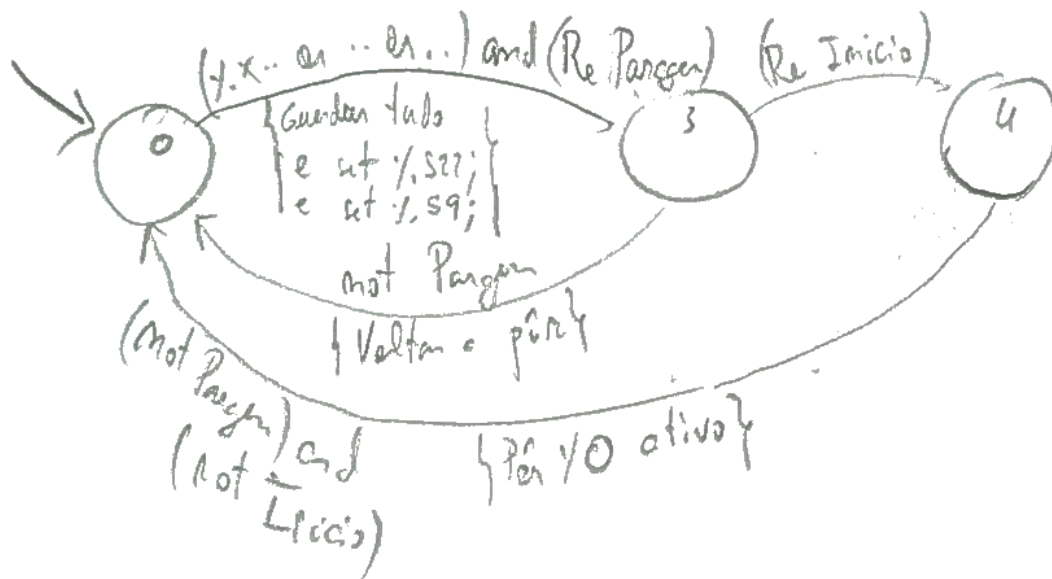 (%.X.. or .. or ..) and (Re Paragem)
(Re Inicio)
0
3
4
{ Guardar tudo
e set %.S22;
e set %.S9; }
not Paragem
{ Voltar a pôr }
(not Paragem) and
(not Inicio)
{ Pôr %0 ativo }